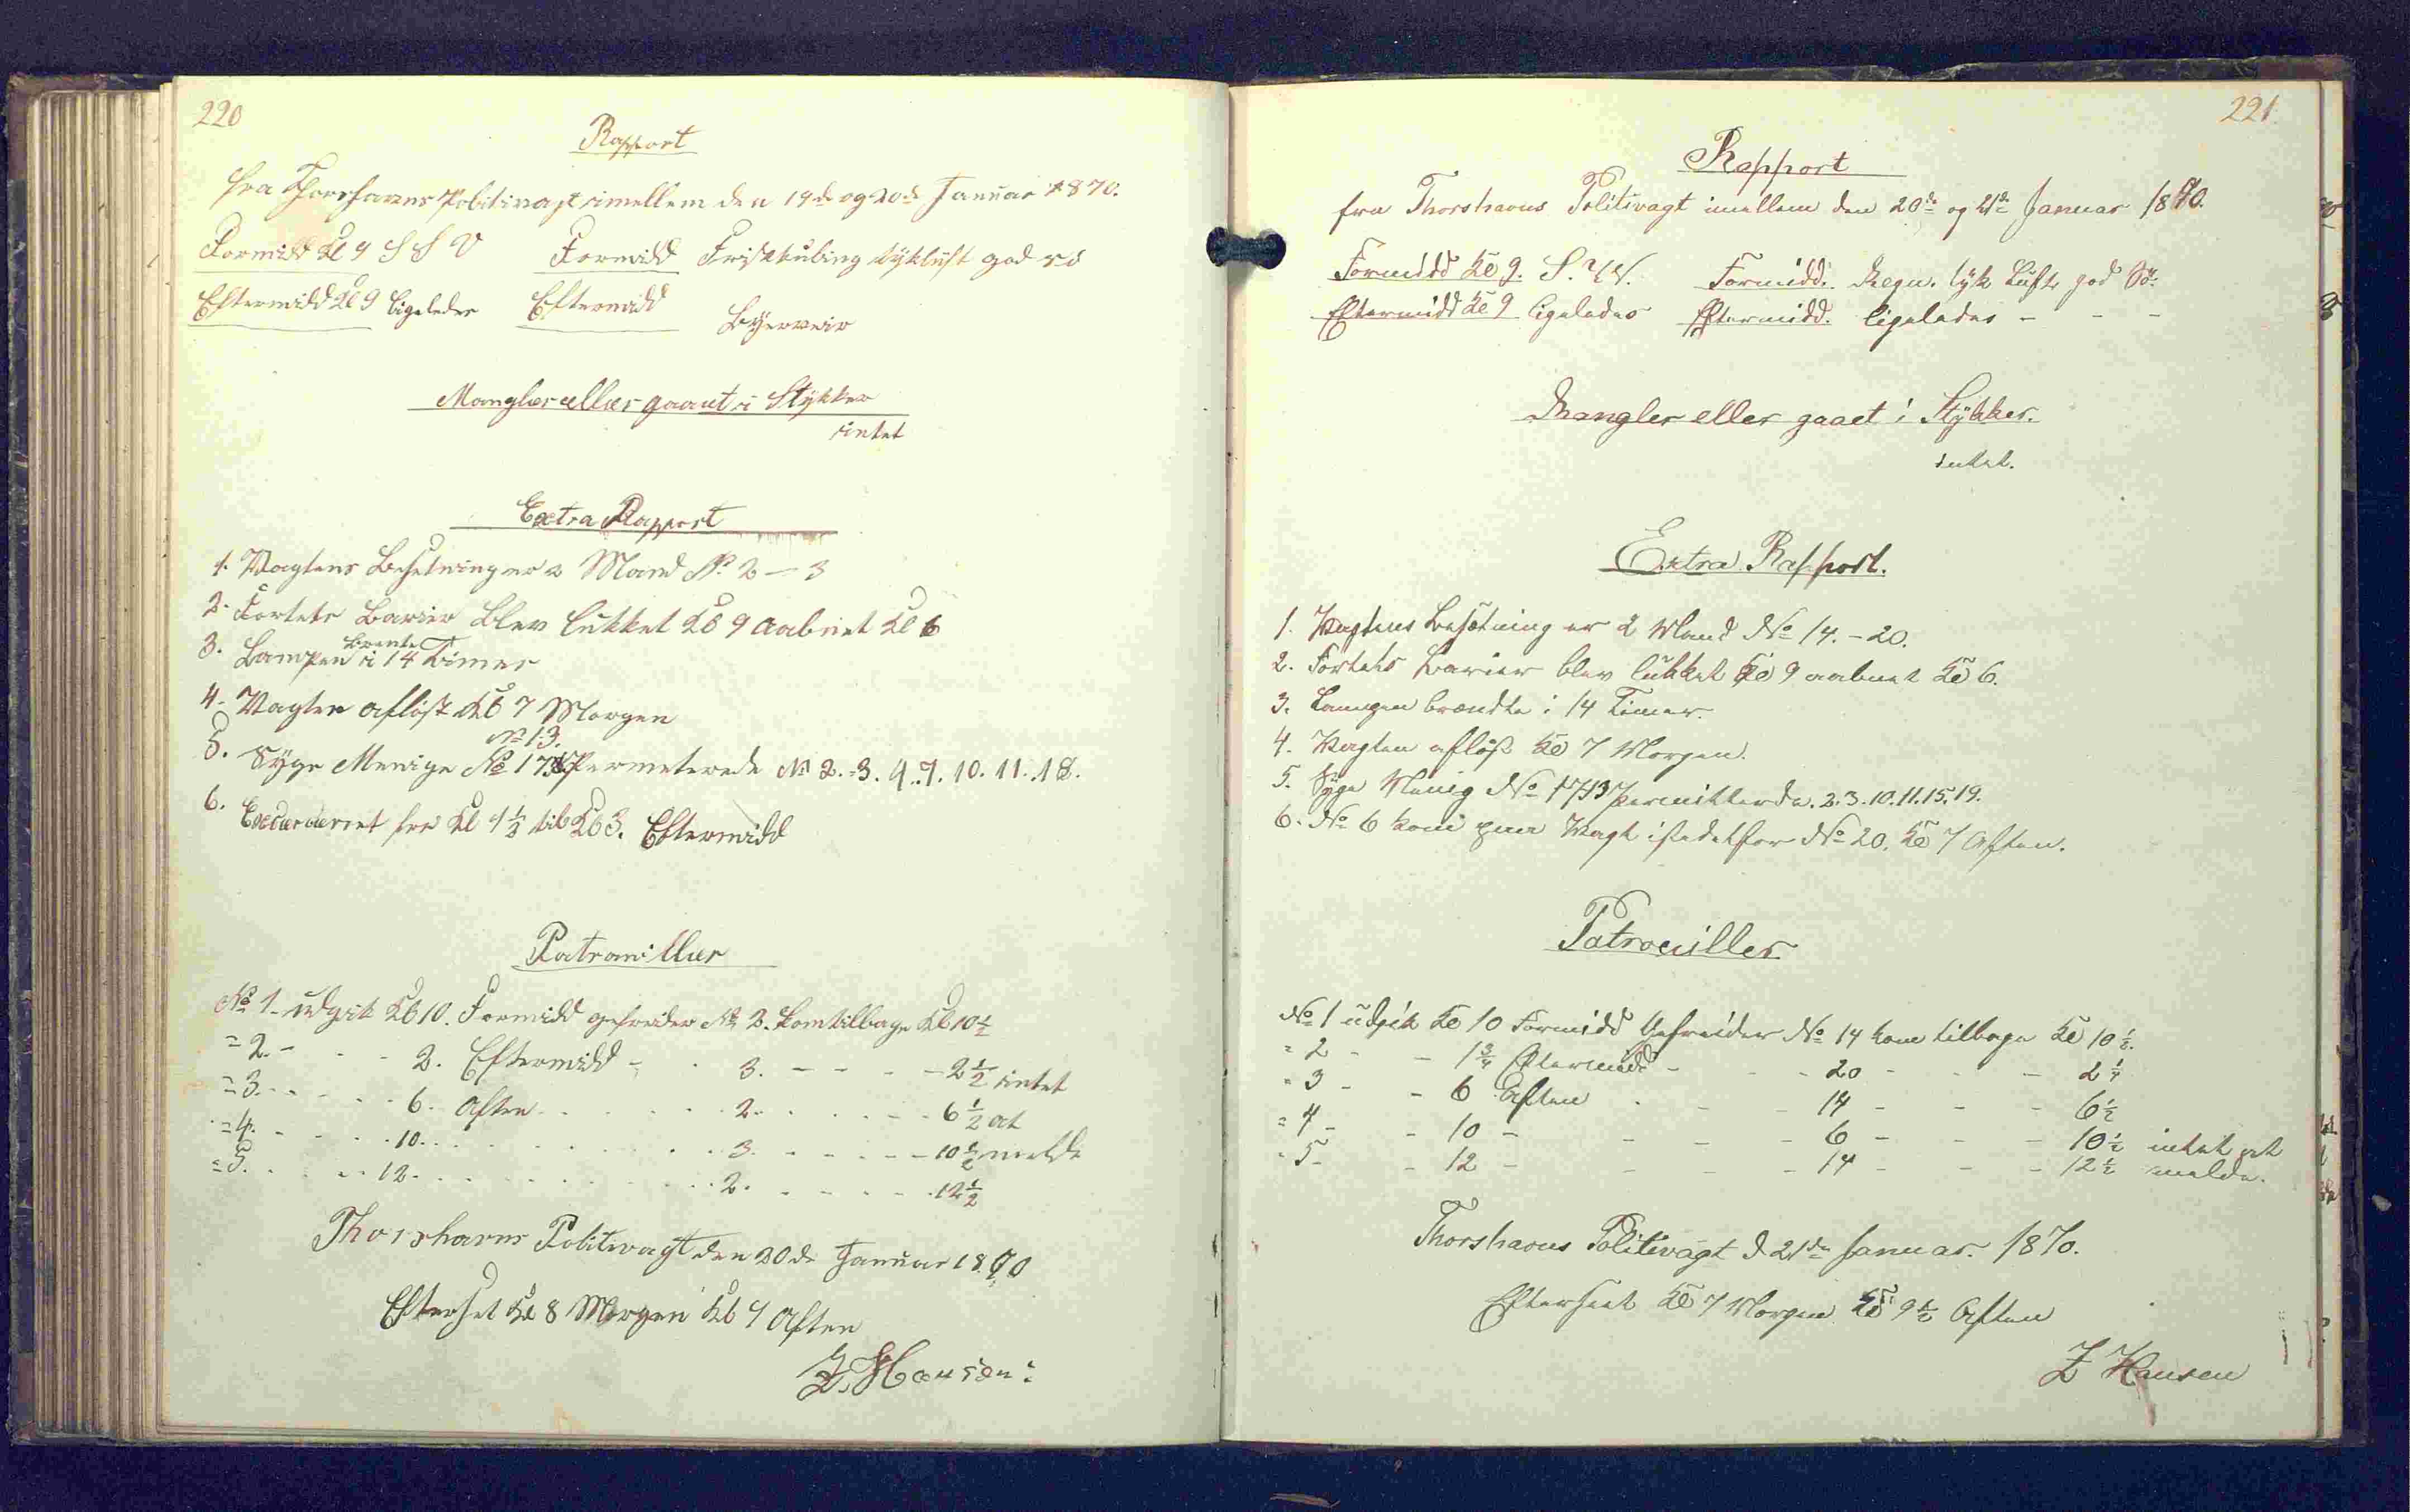 220
Rapport
fra Thorshavns Politivagt imellem den 19de og 20de Januar 1870.
Formidd Kl 9 S S V Formidd Friskkuling tykluft god sö
Eftermidd Kl 9 ligeleder Eftermidd Byerveir
Mangler eller gaaet i Stykker
intet
Extra Rapport
1. Vagtens Besetning er 2 Mand No 2 – 3
2. Fortets Barier blev lukket Kl 9 aabnet Kl 6
3. Lampen brente i 14 Timer
4. Vagten aflöst Kl 7 Morgen
5. Syge Menige No 17 No 13. Permeterede No 2. 3. 9. 7. 10. 11. 18.
6. fra Kl 1 1/2 til Kl 3. Eftermidd
Patrouiller
No 1 udgik Kl 10. Formidd gefreider No 2. kom tilbage Kl 10 1/2
= 2. - - - 2. Eftermidd - - 3. - - - - 2 1/2 intet
= 3. - - - - 6. Aften - - - - 2. - - - - 6 1/2 at
= 4. - - - - 10. - - - - - 3. - - - - 10 1/2 melde
= 5. - - - 12. - - - - - 2. - - - - 12 1/2
Thorshavns Politivagt den 20de Januar 1870
Efterset Kl 8 Morgen Kl 9 Aften
Z. Hansen
221.
Rapport
fra Thorshavns Politivagt imellem den 20de og 21de Januar 1870.
Formidd Kl 9. S. V. Formidd. Regn. tyk Luft, god Sö.
Eftermidd Kl 9 ligeledes Eftermidd. ligeledes - - -
Mangler eller gaaet i Stykker.
intet.
Extra Rapport.
1. Vagtens Besætning er 2 Mand No 14. - 20.
2. Fortets Barier blev lukket Kl 9 aabnet Kl 6.
3. Lampen brændte i 14 Timer.
4. Vagten aflöst Kl 7 Morgen.
5. Syge Menig No 17 13 permitterde. 2. 3. 10. 11. 15. 19.
6. No 6 kom paa Vagt istedetfor No 20. Kl 7 Aften.
Patrouiller
No 1 udgik Kl 10 Formidd Gefreider No 14 kom tilbage Kl 10 1/2.
= 2 - - 1 3/4 Eftermidd - - 20 - - 2 1/4
= 3 - - 6 Aften - - 14 - - - 6 1/2
= 4 - - 10 - - - - 6 - - - 10 1/2 intet at
= 5 - - 12 - - - - 14 - - - 12 1/2 melde.
Thorshavns Politivagt d 21de Januar. 1870.
Efterseet Kl 7 Morgen Kl 9 1/2 Aften
Z Hansen